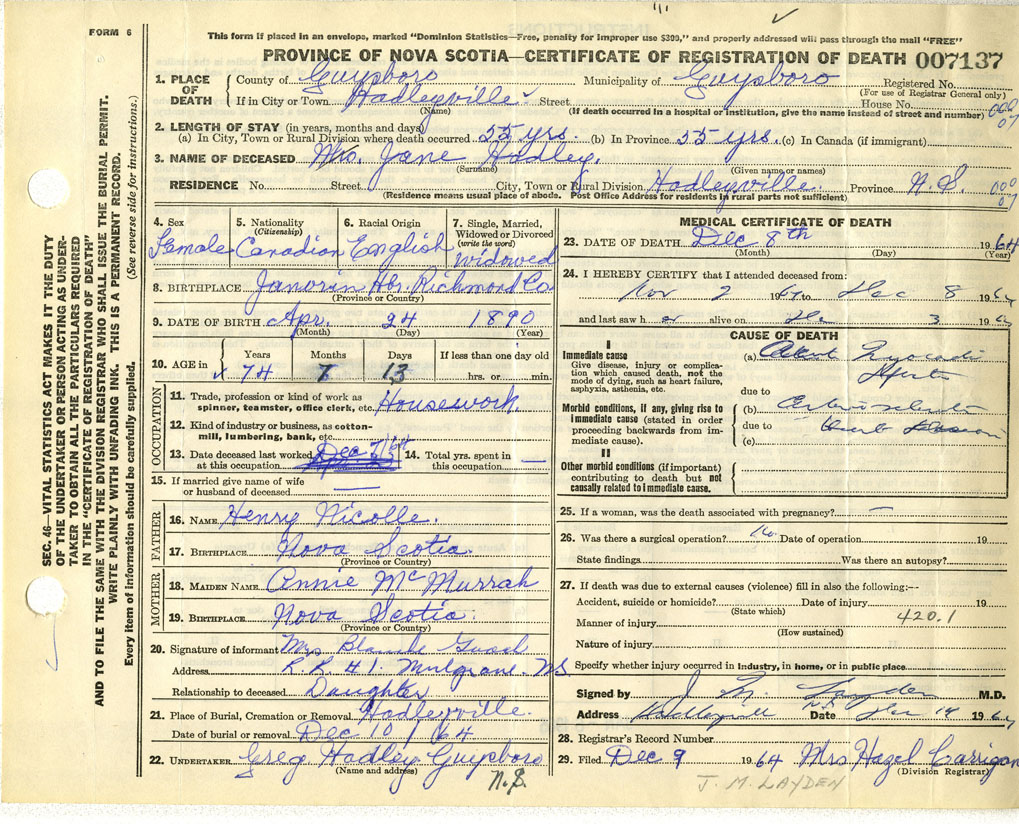 FORM 6
This form if placed in an envelope, marked "Dominion Statistics—Free, penalty for improper use $300," and properly addressed will pass through the mail "FREE"
PROVINCE OF NOVA SCOTIA—CERTIFICATE OF REGISTRATION OF DEATH 007137
SEC. 46—VITAL STATISTICS ACT MAKES IT THE DUTY
OF THE UNDERTAKER OR PERSON ACTING AS UNDER-
TAKER TO OBTAIN ALL THE PARTICULARS REQUIRED
IN THE "CERTIFICATE OF REGISTRATION OF DEATH"
AND TO FILE THE SAME WITH THE DIVISION REGISTRAR WHO SHALL ISSUE THE BURIAL PERMIT.
WRITE PLAINLY WITH UNFADING INK. THIS IS A PERMANENT RECORD.
Every item of information should be carefully supplied. (See reverse side for instructions.)
1. PLACE OF DEATH
County of Guysboro Municipality of Guysboro Registered No.
(For use of Registrar General only)
If in City or Town Hadleyville Street House No.
(Name) (If death occurred in a hospital or institution, give the name instead of street and number)
002
07
2. LENGTH OF STAY (in years, months and days)
(a) In City, Town or Rural Division where death occurred 55 yrs. (b) In Province 55 yrs. (c) In Canada (if immigrant)
3. NAME OF DECEASED Mrs. Jane Hadley.
(Surname) (Given name or names)
RESIDENCE No. Street City, Town or Rural Division Hadleyville. Province N.S.
(Residence means usual place of abode. Post Office Address for residents in rural parts not sufficient)
07
4. Sex
Female
5. Nationality
(Citizenship)
Canadian
6. Racial Origin
English
7. Single, Married,
Widowed or Divorced
(write the word)
Widowed
8. BIRTHPLACE Janvrin Hbr. Richmond Co
(Province or Country)
9. DATE OF BIRTH Apr. 24 1890
(Month) (Day) (Year)
10. AGE in
Years Months Days If less than one day old
74 7 13 hrs. or min.
OCCUPATION
11. Trade, profession or kind of work as
spinner, teamster, office clerk, etc. Housework.
12. Kind of industry or business, as cotton-
mill, lumbering, bank, etc.
13. Date deceased last worked at this occupation Dec 7/64
14. Total yrs. spent in this occupation —
15. If married give name of wife
or husband of deceased —
FATHER
16. NAME Henry Nicolle.
17. BIRTHPLACE Nova Scotia
(Province or Country)
MOTHER
18. MAIDEN NAME Annie McMurrah
19. BIRTHPLACE Nova Scotia.
(Province or Country)
20. Signature of informant Mrs Blanche
Address R.R #1. Mulgrave. N.S.
Relationship to deceased Daughter
21. Place of Burial, Cremation or Removal Hadleyville.
Date of burial or removal Dec 10/64
22. UNDERTAKER Greg Hadley Guysboro
(Name and address) N.S.
MEDICAL CERTIFICATE OF DEATH
23. DATE OF DEATH Dec 8th 1964
(Month) (Day) (Year)
24. I HEREBY CERTIFY that I attended deceased from:
Nov 2 1964 to Dec 8 1964
and last saw her alive on Dec 3 1964
CAUSE OF DEATH
I
Immediate cause
Give disease, injury or complica-
tion which caused death, not the
mode of dying, such as heart failure,
asphyxia, asthenia, etc.
(a)
due to
Morbid conditions, if any, giving rise to
immediate cause (stated in order
proceeding backwards from im-
mediate cause).
(b)
due to
(c)
II
Other morbid conditions (if important)
contributing to death but not
causally related to immediate cause.
25. If a woman, was the death associated with pregnancy? —
26. Was there a surgical operation? No. Date of operation 19
State findings Was there an autopsy?
27. If death was due to external causes (violence) fill in also the following:—
Accident, suicide or homicide? Date of injury 19
(State which)
Manner of injury 420.1
(How sustained)
Nature of injury
Specify whether injury occurred in industry, in home, or in public place
Signed by J M. Layden M.D.
Address Hadleyvill N.S. Date Dec 14 1964
28. Registrar's Record Number
29. Filed Dec 9 1964 Mrs Hazel Carrigan
(Division Registrar)
J. M. LAYDEN